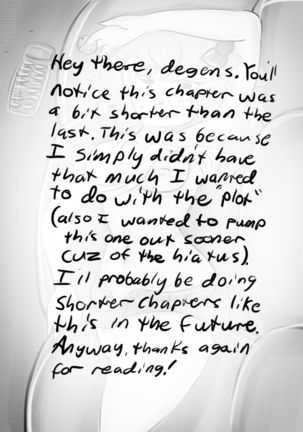 Hey there, degens. You'll
notice this chapter was
a bit shorter than the
last. This was because
I simply didn't have
that much I wanted
to do with the "plot"
(also I wanted to pump
this one out sooner
cuz of the hiatus).
I'll probably be doing
shorter chapters like
this in the future.
Anyway, thanks again
for reading!